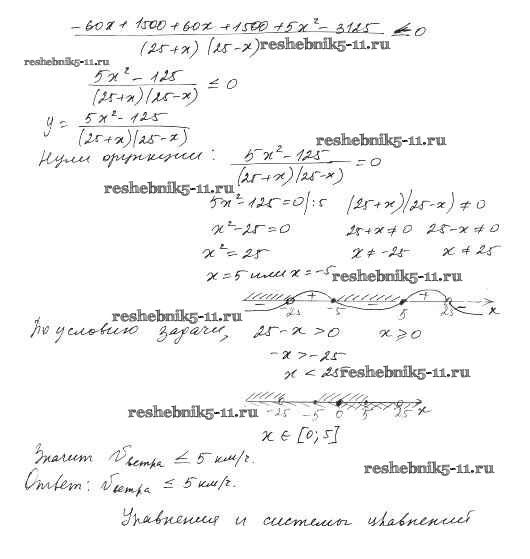 (-60x + 1500 + 60x + 1500 + 5x² - 3125) / ((25+x)(25-x)) ≤ 0
reshebnik5-11.ru
reshebnik5-11.ru
(5x² - 125) / ((25+x)(25-x)) ≤ 0
y = (5x² - 125) / ((25+x)(25-x))
reshebnik5-11.ru
Нули функции: (5x² - 125) / ((25+x)(25-x)) = 0
reshebnik5-11.ru
5x² - 125 = 0 |:5 (25+x)(25-x) ≠ 0
x² - 25 = 0 25+x ≠ 0 25-x ≠ 0
x² = 25 x ≠ -25 x ≠ 25
x = 5 или x = -5
reshebnik5-11.ru
+ - + -
-25 -5 5 25 x
reshebnik5-11.ru
По условию задачи, 25 - x > 0 x ≥ 0
-x > -25
x < 25
reshebnik5-11.ru
-25 -5 0 5 25 x
reshebnik5-11.ru
x ∈ [0; 5]
Значит Vветра ≤ 5 км/ч.
reshebnik5-11.ru
Ответ: Vветра ≤ 5 км/ч.
Уравнения и системы уравнений